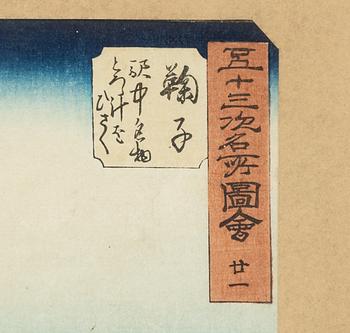 五十三次名所圖會 廿一
鞠子
駅中名物
とろゝ汁屋
ひさく